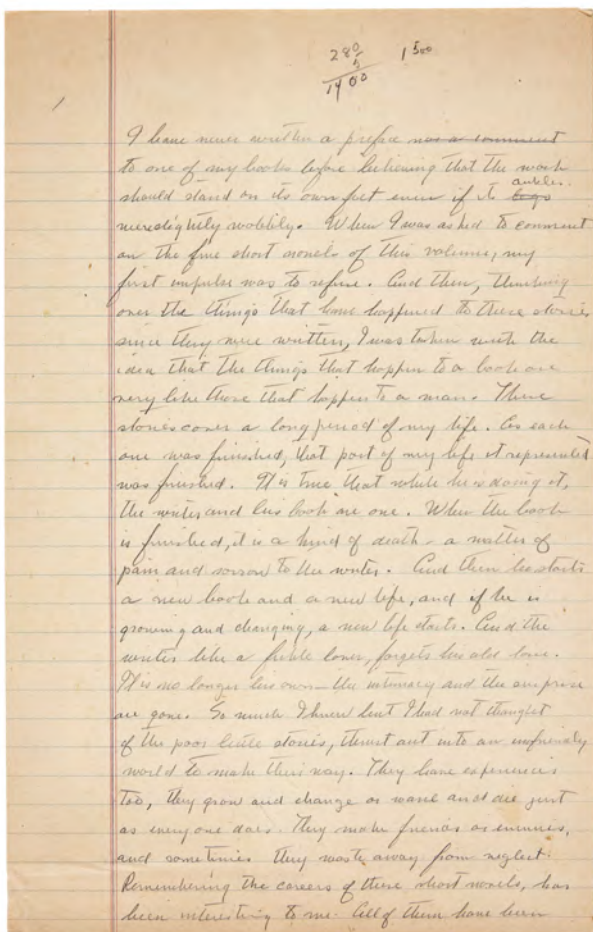 280 1500
5
1400
1
I have never written a preface nor a comment
to one of my books before believing that the work
should stand on its own feet even if its legs ankles
were slightly wobbily. When I was asked to comment
on the five short novels of this volume, my
first impulse was to refuse. And then, thinking
over the things that have happened to these stories
since they were written, I was taken with the
idea that the things that happen to a book are
very like those that happen to a man. These
stories cover a long period of my life. As each
one was finished, that part of my life it represented
was finished. It is true that while he is doing it,
the writer and his book are one. When the book
is finished, it is a kind of death - a matter of
pain and sorrow to the writer. And then he starts
a new book and a new life, and if he is
growing and changing, a new life starts. And the
writer like a fickle lover, forgets his old love.
It is no longer his own — the intimacy and the surprise
are gone. So much I knew but I had not thought
of the poor little stories, thrust out into an unfriendly
world to make their way. They have experiences
too, they grow and change or wane and die just
as everyone does. They make friends or enemies,
and sometimes they waste away from neglect.
Remembering the careers of these short novels, has
been interesting to me. All of them have been